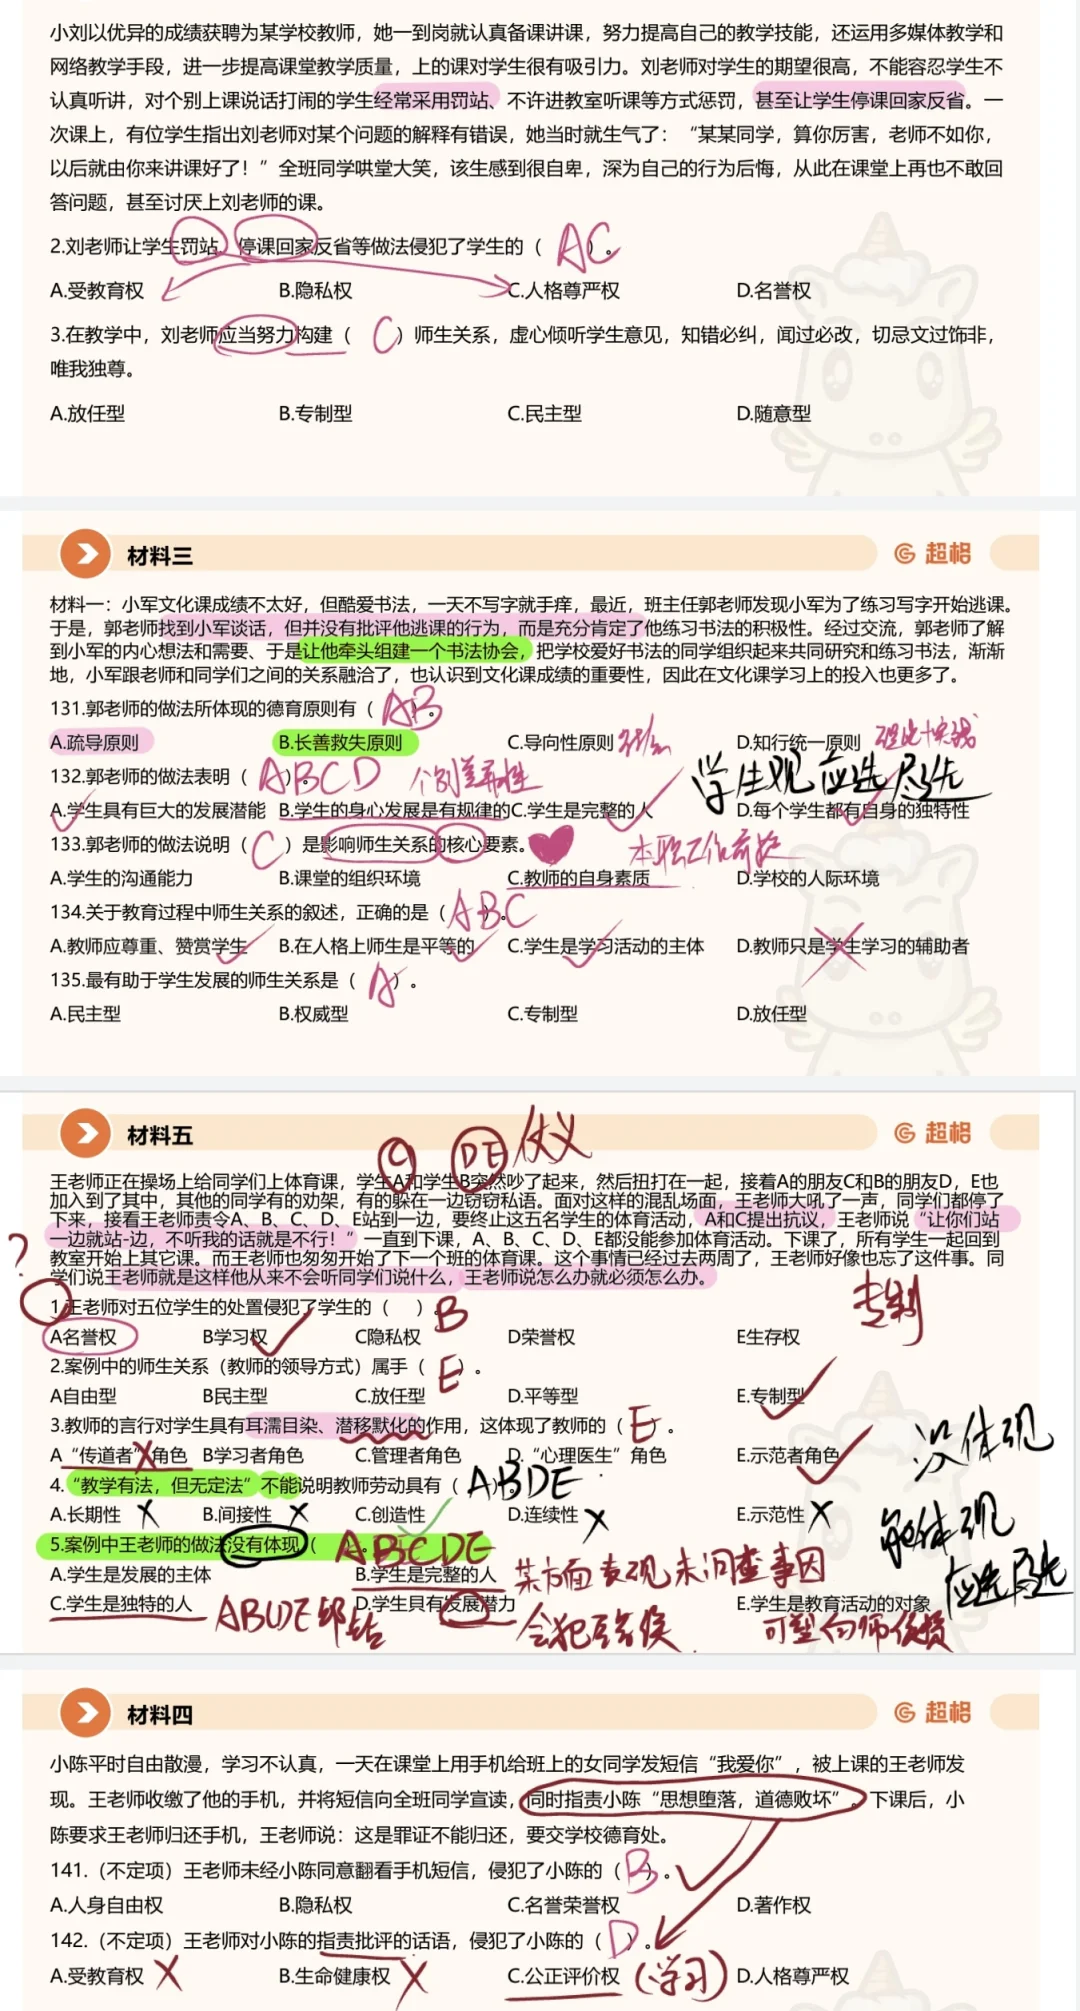 小刘以优异的成绩获聘为某学校教师，她一到岗就认真备课讲课，努力提高自己的教学技能，还运用多媒体教学和
网络教学手段，进一步提高课堂教学质量，上的课对学生很有吸引力。刘老师对学生的期望很高，不能容忍学生不
认真听讲，对个别上课说话打闹的学生经常采用罚站、不许进教室听课等方式惩罚，甚至让学生停课回家反省。一
次课上，有位学生指出刘老师对某个问题的解释有错误，她当时就生气了：“某某同学，算你厉害，老师不如你，
以后就由你来讲课好了！”全班同学哄堂大笑，该生感到很自卑，深为自己的行为后悔，从此在课堂上再也不敢回
答问题，甚至讨厌上刘老师的课。
2.刘老师让学生罚站、停课回家反省等做法侵犯了学生的（ AC ）。
A.受教育权 B.隐私权 C.人格尊严权 D.名誉权
3.在教学中，刘老师应当努力构建（ C ）师生关系，虚心倾听学生意见，知错必纠，闻过必改，切忌文过饰非，
唯我独尊。
A.放任型 B.专制型 C.民主型 D.随意型
材料三 超格
材料一：小军文化课成绩不太好，但酷爱书法，一天不写字就手痒，最近，班主任郭老师发现小军为了练习写字开始逃课。
于是，郭老师找到小军谈话，但并没有批评他逃课的行为，而是充分肯定了他练习书法的积极性。经过交流，郭老师了解
到小军的内心想法和需要、于是让他牵头组建一个书法协会，把学校爱好书法的同学组织起来共同研究和练习书法，渐渐
地，小军跟老师和同学们之间的关系融洽了，也认识到文化课成绩的重要性，因此在文化课学习上的投入也更多了。
131.郭老师的做法所体现的德育原则有（ AB ）。
A.疏导原则 B.长善救失原则 C.导向性原则 D.知行统一原则 理论+实践
132.郭老师的做法表明（ ABCD ）。 个别差异性 学生观 应选尽选
A.学生具有巨大的发展潜能 B.学生的身心发展是有规律的C.学生是完整的人 D.每个学生都有自身的独特性
133.郭老师的做法说明（ C ）是影响师生关系的核心要素。 本职工作
A.学生的沟通能力 B.课堂的组织环境 C.教师的自身素质 D.学校的人际环境
134.关于教育过程中师生关系的叙述，正确的是（ ABC ）。
A.教师应尊重、赞赏学生 B.在人格上师生是平等的 C.学生是学习活动的主体 D.教师只是学生学习的辅助者
135.最有助于学生发展的师生关系是（ A ）。
A.民主型 B.权威型 C.专制型 D.放任型
材料五 超格
C DE 仗义
王老师正在操场上给同学们上体育课，学生A和学生B突然吵了起来，然后扭打在一起，接着A的朋友C和B的朋友D，E也
加入到了其中，其他的同学有的劝架，有的躲在一边窃窃私语。面对这样的混乱场面，王老师大吼了一声，同学们都停了
下来，接看王老师责令A、B、C、D、E站到一边，要终止这五名学生的体育活动，A和C提出抗议，王老师说“让你们站
一边就站-边，不听我的话就是不行！”一直到下课，A、B、C、D、E都没能参加体育活动。下课了，所有学生一起回到
教室开始上其它课。而王老师也匆匆开始了下一个班的体育课。这个事情已经过去两周了，王老师好像也忘了这件事。同
学们说王老师就是这样他从来不会听同学们说什么，王老师说怎么办就必须怎么办。
?
1.王老师对五位学生的处置侵犯了学生的（ ）。B 专制
A名誉权 B学习权 C隐私权 D荣誉权 E生存权
2.案例中的师生关系（教师的领导方式）属手（ E ）。
A自由型 B民主型 C.放任型 D.平等型 E.专制型
3.教师的言行对学生具有耳濡目染、潜移默化的作用，这体现了教师的（ E ）。
A“传道者”角色 B学习者角色 C.管理者角色 D.“心理医生”角色 E.示范者角色 没体现
4.“教学有法，但无定法”不能说明教师劳动具有（ ABDE ）。
A.长期性 B.间接性 C.创造性 D.连续性 E.示范性
5.案例中王老师的做法没有体现（ ABCDE
A.学生是发展的主体 B.学生是完整的人 某方面表现 未问查事因 应选尽选
C.学生是独特的人 D.学生具有发展潜力 E.学生是教育活动的对象
会犯 可塑 向师
材料四 超格
小陈平时自由散漫，学习不认真，一天在课堂上用手机给班上的女同学发短信“我爱你”，被上课的王老师发
现。王老师收缴了他的手机，并将短信向全班同学宣读，同时指责小陈“思想堕落，道德败坏”。下课后，小
陈要求王老师归还手机，王老师说：这是罪证不能归还，要交学校德育处。
141.（不定项）王老师未经小陈同意翻看手机短信，侵犯了小陈的（ B ）。
A.人身自由权 B.隐私权 C.名誉荣誉权 D.著作权
142.（不定项）王老师对小陈的指责批评的话语，侵犯了小陈的（ D ）。
A.受教育权 B.生命健康权 C.公正评价权 （学习） D.人格尊严权